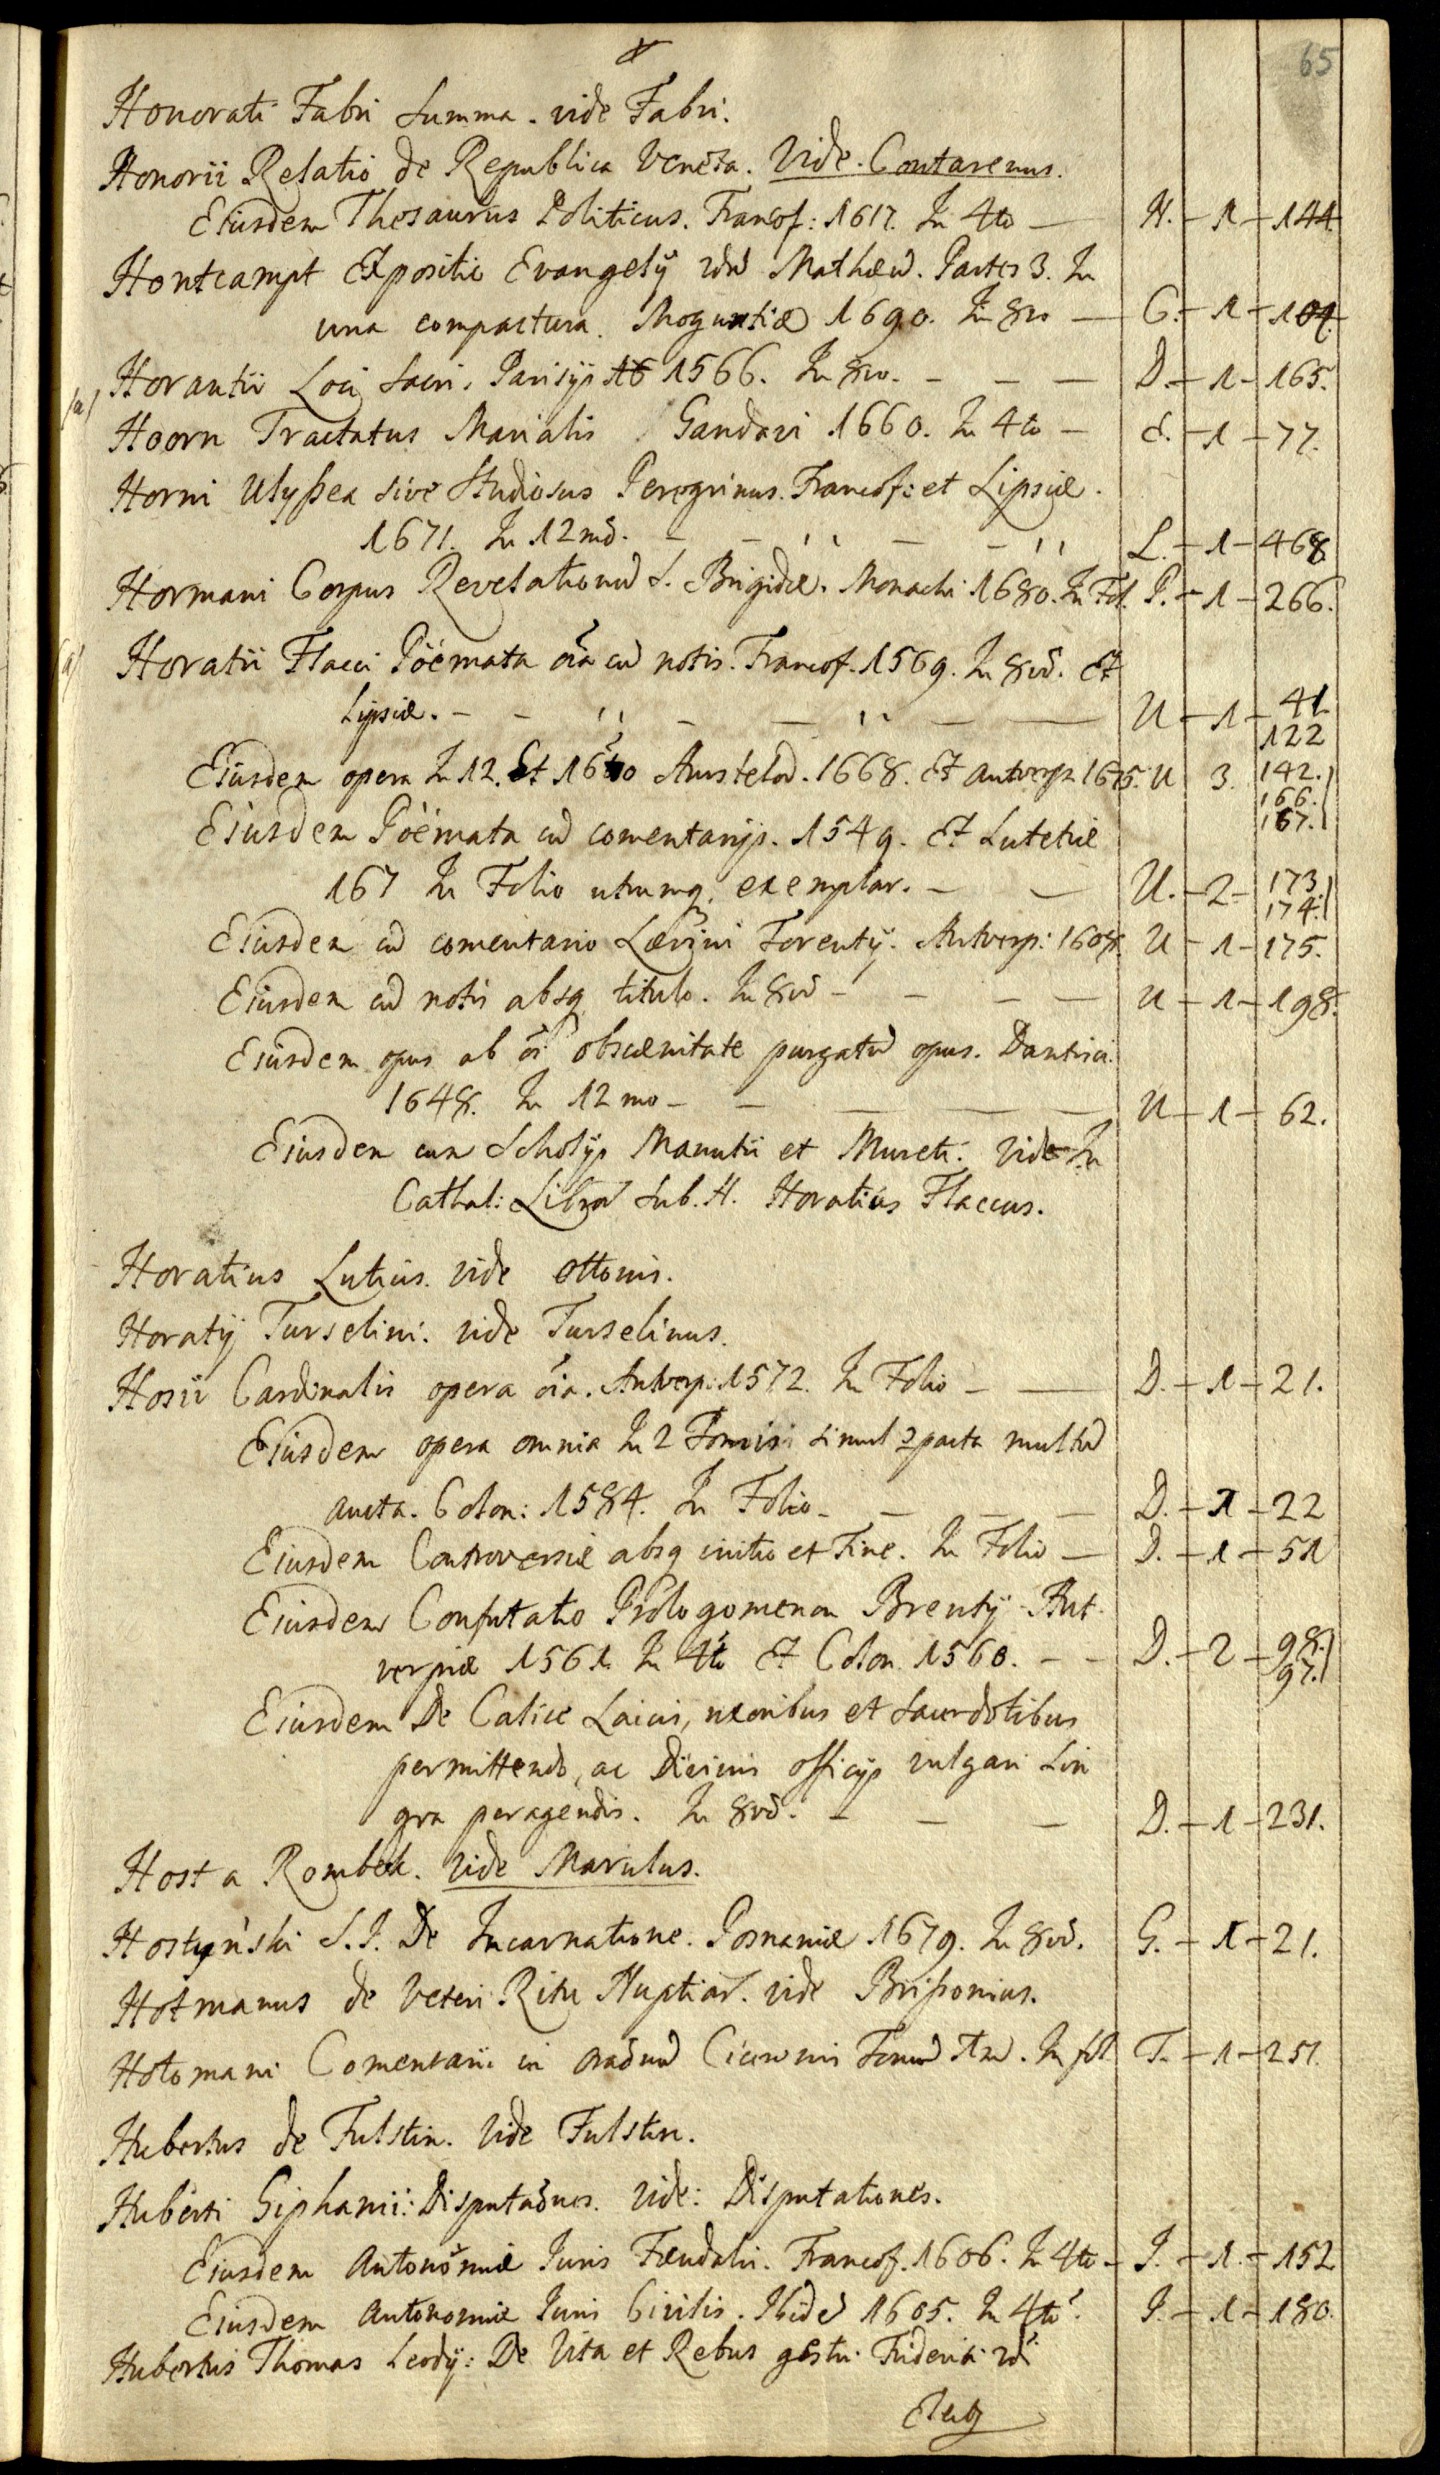 65
Honorati Fabri Summa. vide Fabri.
Honorii Relatio de Republica Veneta. Vide. Contarenus.
Eiusdem Thesaurus Politicus. Francof: 1617. In 4to — H. — 1 — 144
Hontcampt Expositio Evangelÿ Mathæu. Partes 3. In
una compactura. Moguntiæ 1690. In 8vo — C. — 1 — 104
Horantii Loci Sacri. Parisÿs 1566. In 8vo. — — — D. — 1 — 165.
/a/ Hoorn Tractatus Marialis Gandavi 1660. In 4to — E. — 1 — 77.
Horni Ulyssea sive Studiosus Peregrinus. Francof: et Lipsiæ.
1671. In 12mo. — — — — L. — 1 — 468
Hormani Corpus Revelationū S. Brigidæ. Monachi 1680. In Fol. P. — 1 — 266.
/a/ Horatii Flacci Pöemata oīa cū notis. Francof. 1569. In 8vō. Et
Lipsiæ. — — — — — U — 1 — 41
122
Eiusdem opera In 12. Et 16to Amstelod. 1668. Et Antverp. 1675. U 3. 142.
166.
167.
Eiusdem Pöemata cū comentarÿs. 1549. Et Lutetiæ
167 In Folio utrumq. exemplar. — — U. — 2 — 173.
174.
Eiusdem cū comentario Lævini Torentÿ. Antverp: 1608. U — 1 — 175.
Eiusdem cū notis absq titulo. In 8vō — — — — U — 1 — 198.
Eiusdem opus ab oī obscænitate purgatū opus. Dantisci.
1648. In 12mo — — — — — U — 1 — 62.
Eiusdem cum Scholÿs Manutii et Mureti. Vide In
Cathal: Libror Sub. H. Horatius Flaccus.
Horatius Lutius. vide Ottonis.
Horatÿ Turselini. vide Turselinus.
Hosii Cardinalis opera oīa. Antverp: 1572. In Folio — — D. — 1 — 21.
Eiusdem opera omnia In 2 Tomis simul pacta multū
aucta. Colon: 1584. In Folio — — — — D. — 1 — 22
Eiusdem Controversiæ absq initio et Fine. In Folio — D. — 1 — 51
Eiusdem Confutatio Prologomenon Brentÿ Ant-
verpiæ 1561. In 4to Et Colon 1560. — — D. — 2 — 98.
97.
Eiusdem De Calice Laicis, uxoribus et Sacerdotibus
permittendo, ac Divinis officÿs vulgari Lin
gva peragendis. In 8vō. — — — D. — 1 — 231.
Host a Rombek. vide Marulus.
Hostyński S.J. De Incarnatione. Posnaniæ 1679. In 8vō. G. — 1 — 21.
Hotmanus de Veteri Ritu Nuptiar. vide Brissonius.
Hotomani Comentarii in Ciceronis . In fol T. — 1 — 251.
Hubertus de Fulstin. Vide Fulstin.
Huberti Giphanii: Disputaōnes. vide: Disputationes.
Eiusdem Antonomiæ Juris Fæudalis. Francof. 1606. In 4to — J. — 1. — 152
Eiusdem Antonomiæ Juris Civilis. Ibidē 1605. In 4to. J. — 1 — 180.
Hubertus Thomas Leodÿ: De Vita et Rebus gestis Friderici 2di